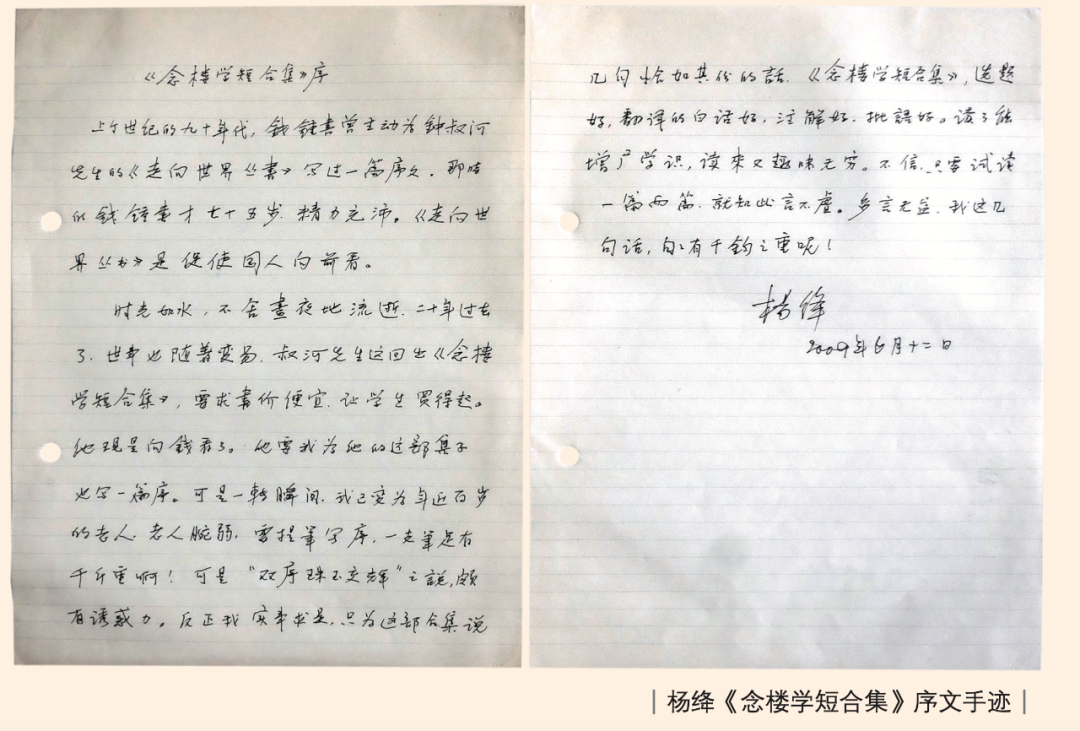 《念楼学短合集》序
上个世纪的九十年代，錢鍾書曾主动为钟叔河
先生的《走向世界丛書》写过一篇序文。那时
的錢鍾書才七十五岁，精力充沛。《走向世
界丛书》是促使国人向前看。
时光如水，不舍晝夜地流逝，二十年过去
了。世事也随着变易，叔河先生这回出《念楼
学短合集》，要求書价便宜，让学生買得起。
他现是向錢看了。他要我为他的这部集子
也写一篇序。可是一转瞬间，我已变为年近百岁
的老人。老人腕弱，要提筆写序，一支筆足有
千斤重啊！可是“双序珠玉交辉”之説，颇
有诱惑力。反正我实事求是，只为这部合集说
几句恰如其份的話。《念楼学短合集》，选题
好，翻译的白话好，注解好，批語好。读了能
增广学识，读来又趣味无穷。不信，只要试读
一篇两篇，就知此言不虚。多言无益，我这几
句话，句句有千钧之重呢！
杨绛
2009年6月十二日
｜杨绛《念楼学短合集》序文手迹｜